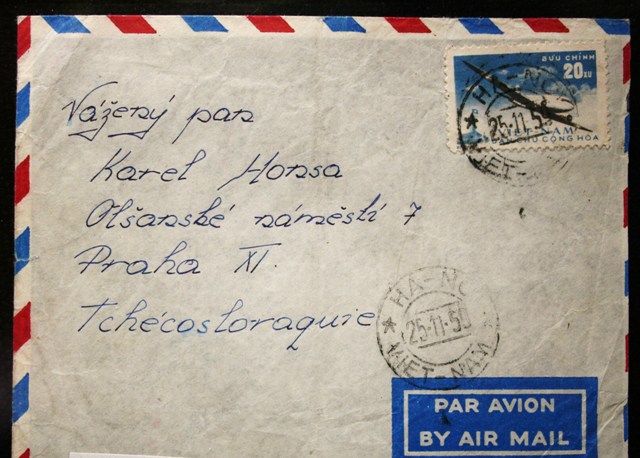 Vážený pan
Karel Honsa
Olšanské náměstí 7
Praha XI.
Tchécoslovaquie
BƯU CHÍNH
20 XU
HA-NOI
25.11.59
VIET-NAM
VIỆT-NAM
DÂN CHỦ CỘNG HÒA
HA-NOI
25-11-59
VIET-NAM
PAR AVION
BY AIR MAIL